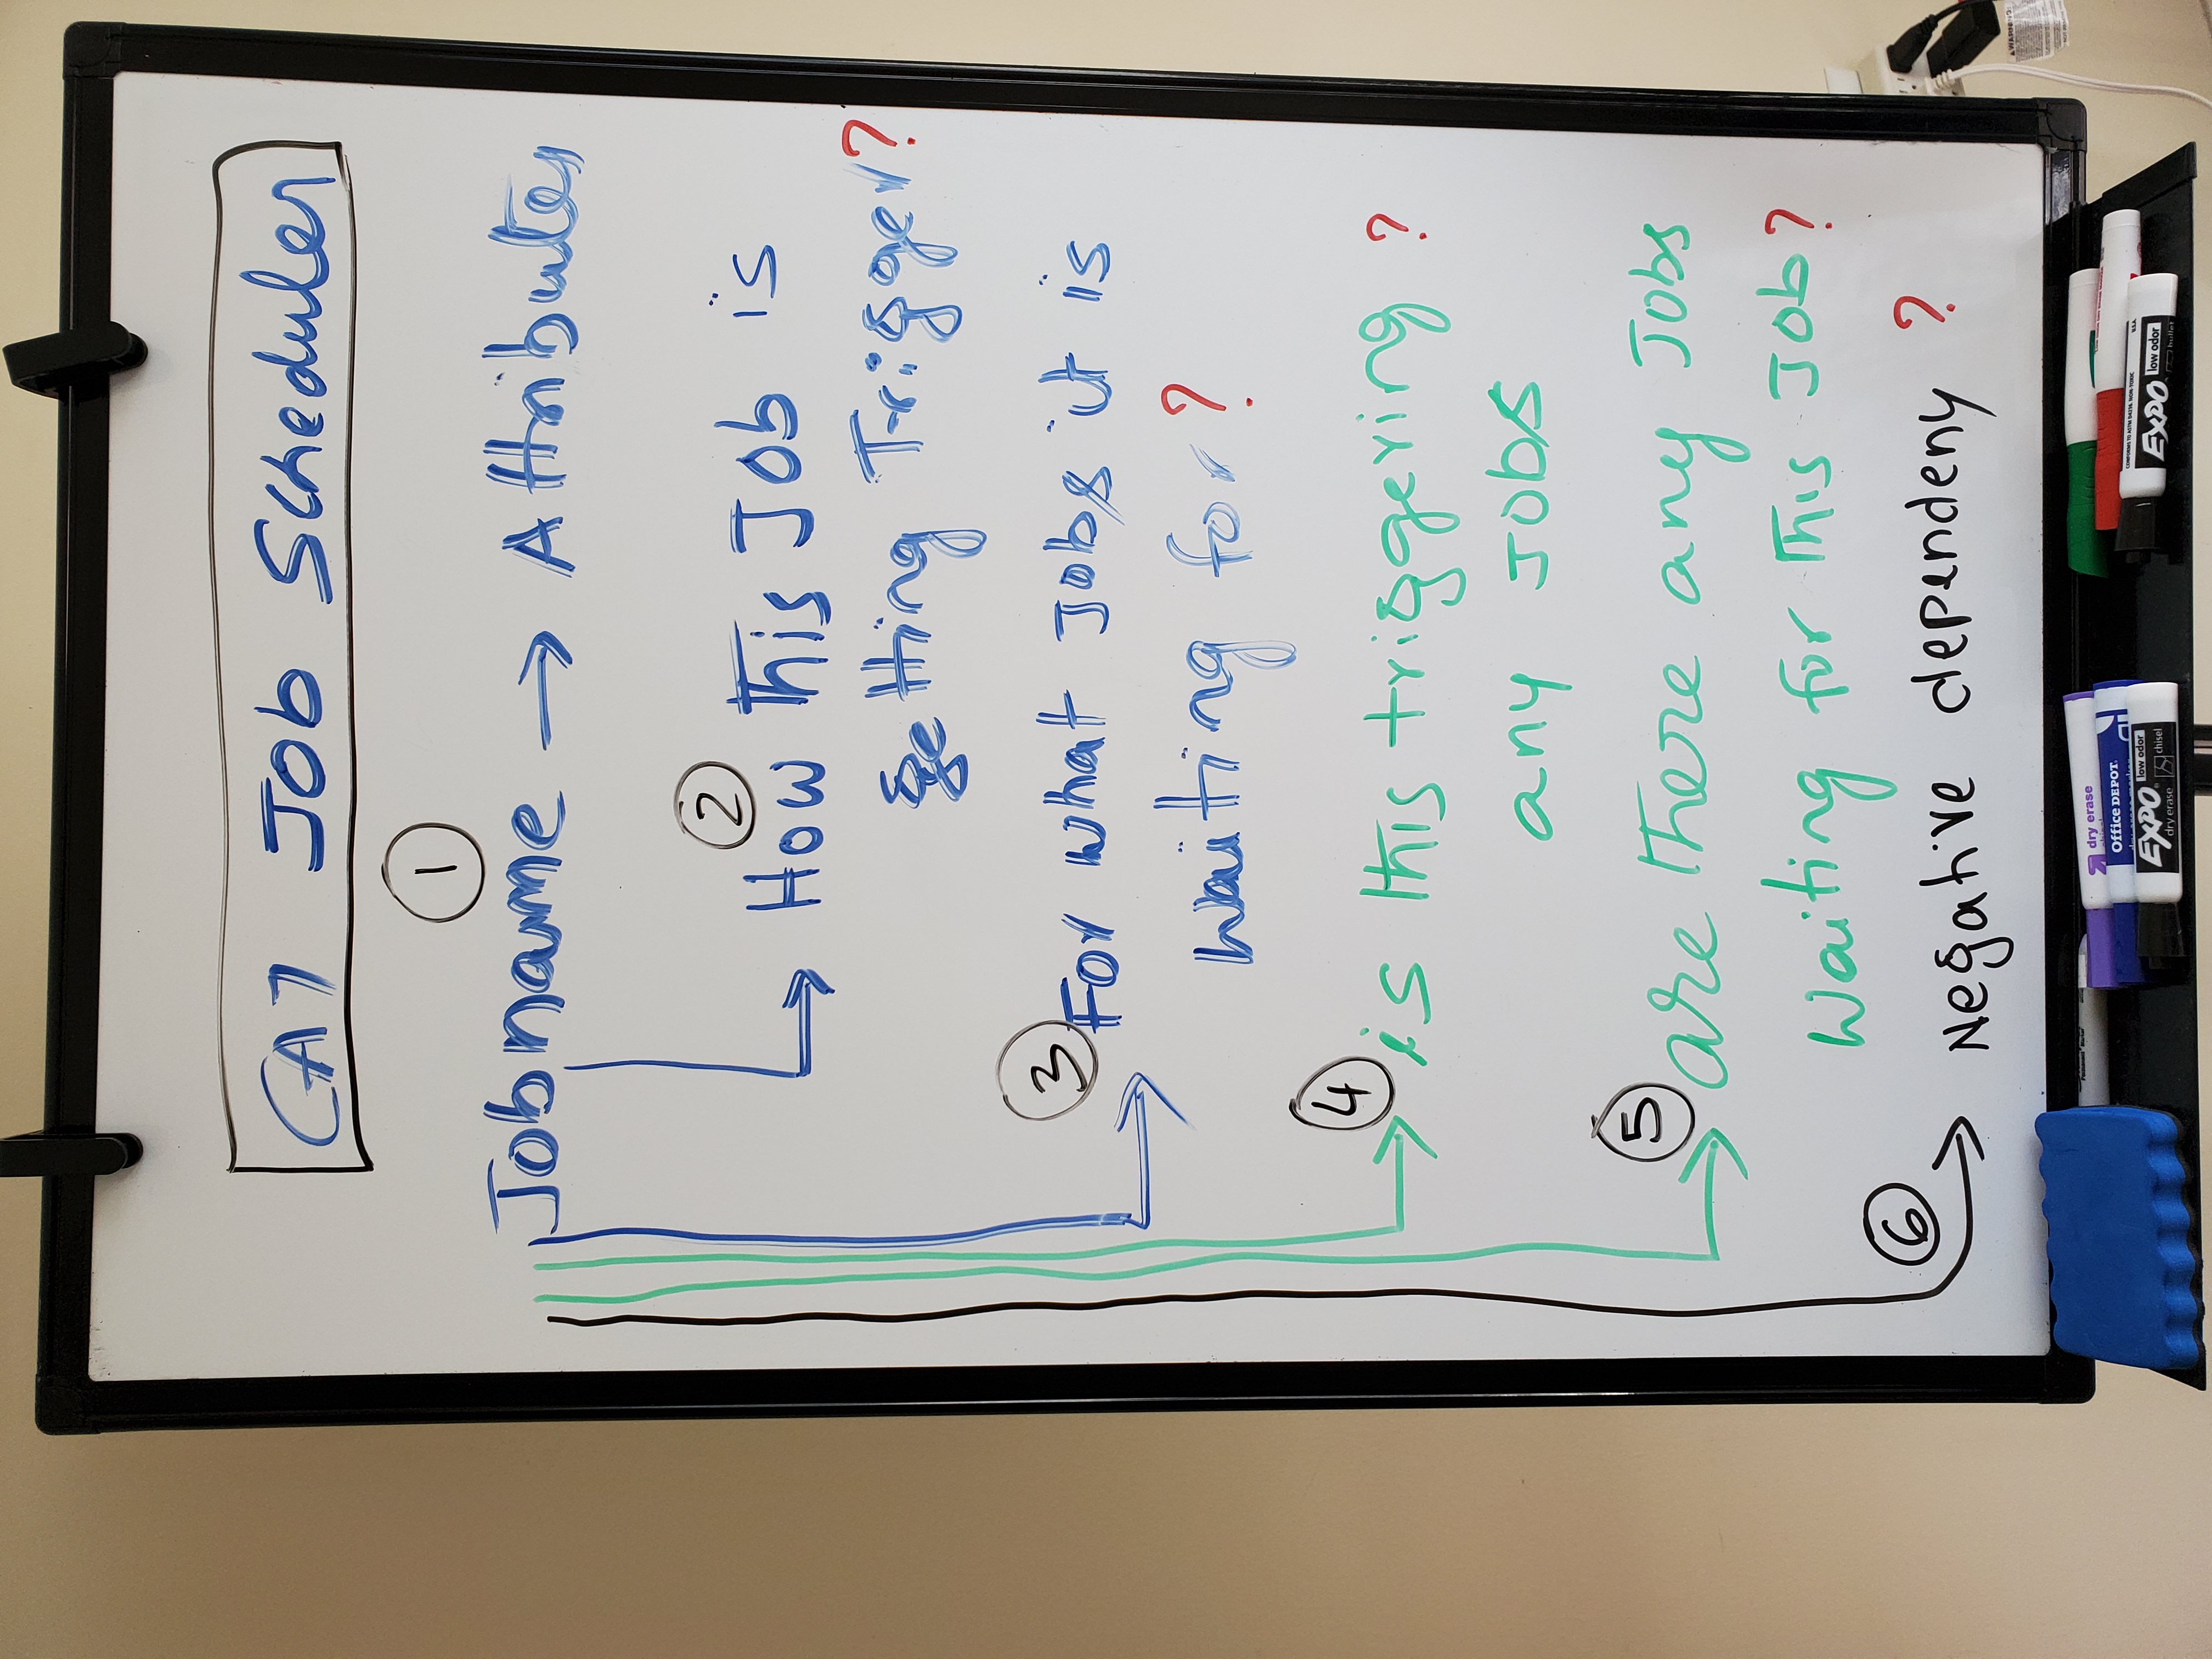 CA7 Job Scheduler
1
Jobname → Attributes
2
How This Job is
getting Trigger?
3
For what Jobs it is
waiting for?
4
is this triggering ?
any Jobs
5
are there any Jobs
Waiting for This Job?
6
Negative dependeny ?
dry erase
Office DEPOT.
EXPO low odor
dry erase chisel
CONFORMS TO ASTM D4236. NON-TOXIC U.S.A.
EXPO low odor
bullet